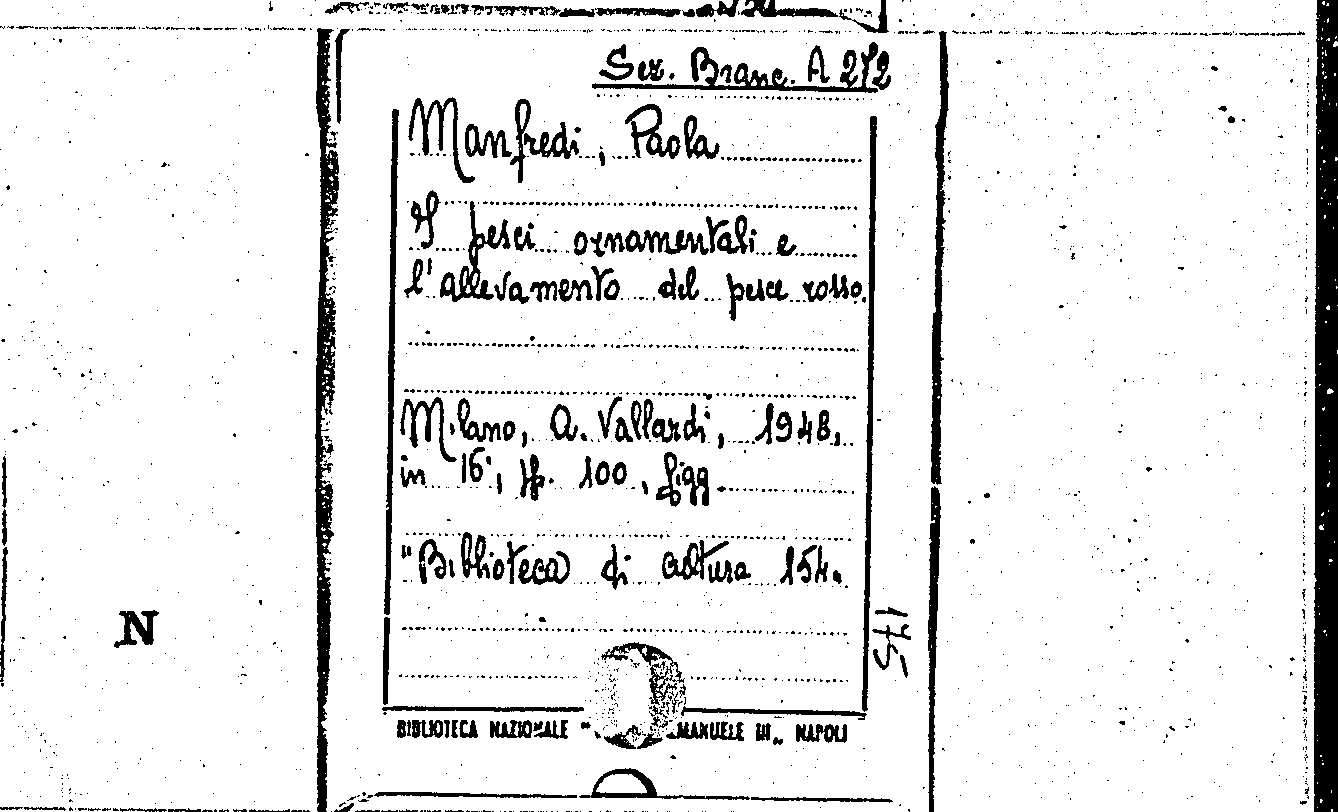 Sez. Branc. A 272
Manfredi, Paola
I pesci ornamentali e
l'allevamento del pesce rosso.
Milano, A. Vallardi, 1948,
in 16°, pp. 100, figg.
"Biblioteca di coltura 154.
145
N
BIBLIOTECA NAZIONALE " MANUELE III„ NAPOLI